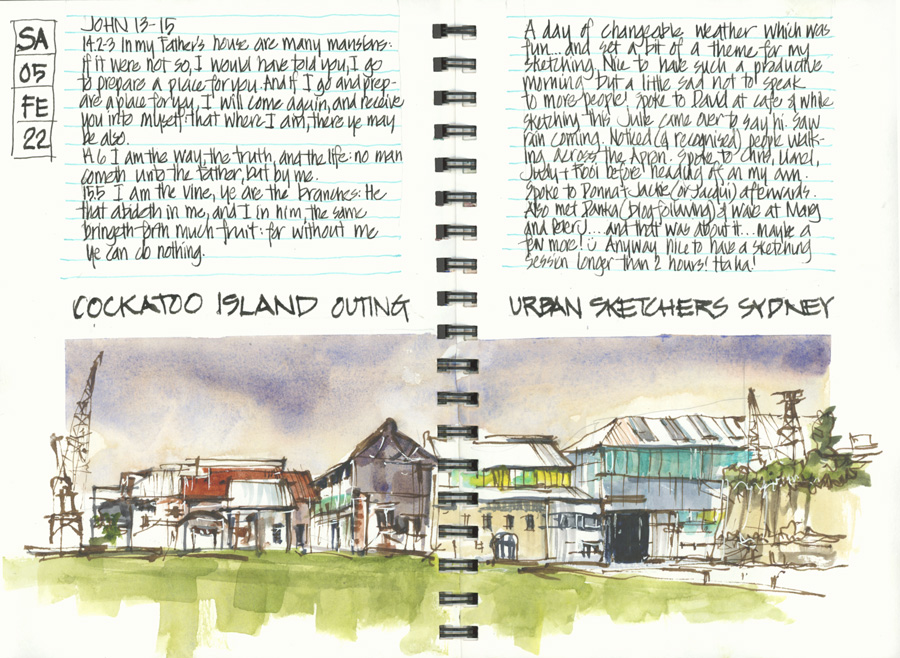 SA
05
FE
22
JOHN 13-15
14.2-3 In my Father's house are many mansions:
if it were not so, I would have told you, I go
to prepare a place for you. And if I go and prep-
are a place for you, I will come again, and receive
you into myself: that where I am, there ye may
be also.
14.6 I am the way, the truth, and the life: no man
cometh unto the father, but by me.
15.5 I am the vine, ye are the branches: He
that abideth in me, and I in him, the same
bringeth forth much fruit: for without me
ye can do nothing.
COCKATOO ISLAND OUTING
A day of changeable weather which was
fun...and set a bit of a theme for my
sketching. Nice to have such a productive
morning but a little sad not to speak
to more people! Spoke to David at cafe & while
sketching this Julie came over to say hi. Saw
rain coming. Noticed (& recognised) people walk-
ing across the Apron. Spoke to Chris,
Judy + before heading off on my own.
Spoke to Donna + Jackie (or Jacqui) afterwards.
Also met Danka (blog following) & wave at Marg
and Peter J....and that was about it...maybe a
few more! Anyway nice to have a sketching
session longer than 2 hours! Haha!
URBAN SKETCHERS SYDNEY